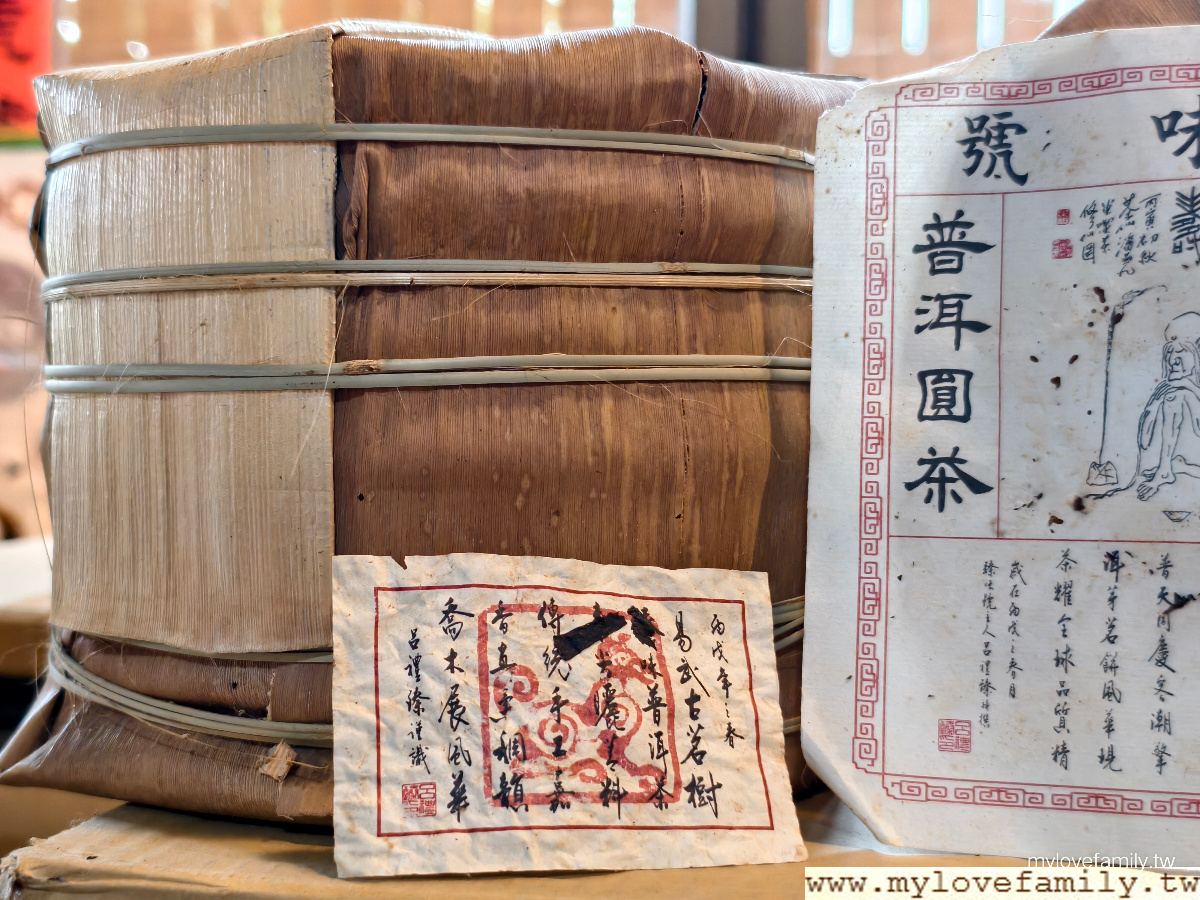 丙戌年之春
易武古茗樹
味普洱茶
曬青料
傳統手工嘉
香真
稠韻
喬木展風華
呂禮臻謹識
味號
壽
丙寅初秋
普洱圓茶
普天同慶冬潮擎
洱芽茗餅風華現
茶耀全球品質精
歲在丙戌之春月
臻味號主人呂禮臻
mylovefamily.tw
www.mylovefamily.tw